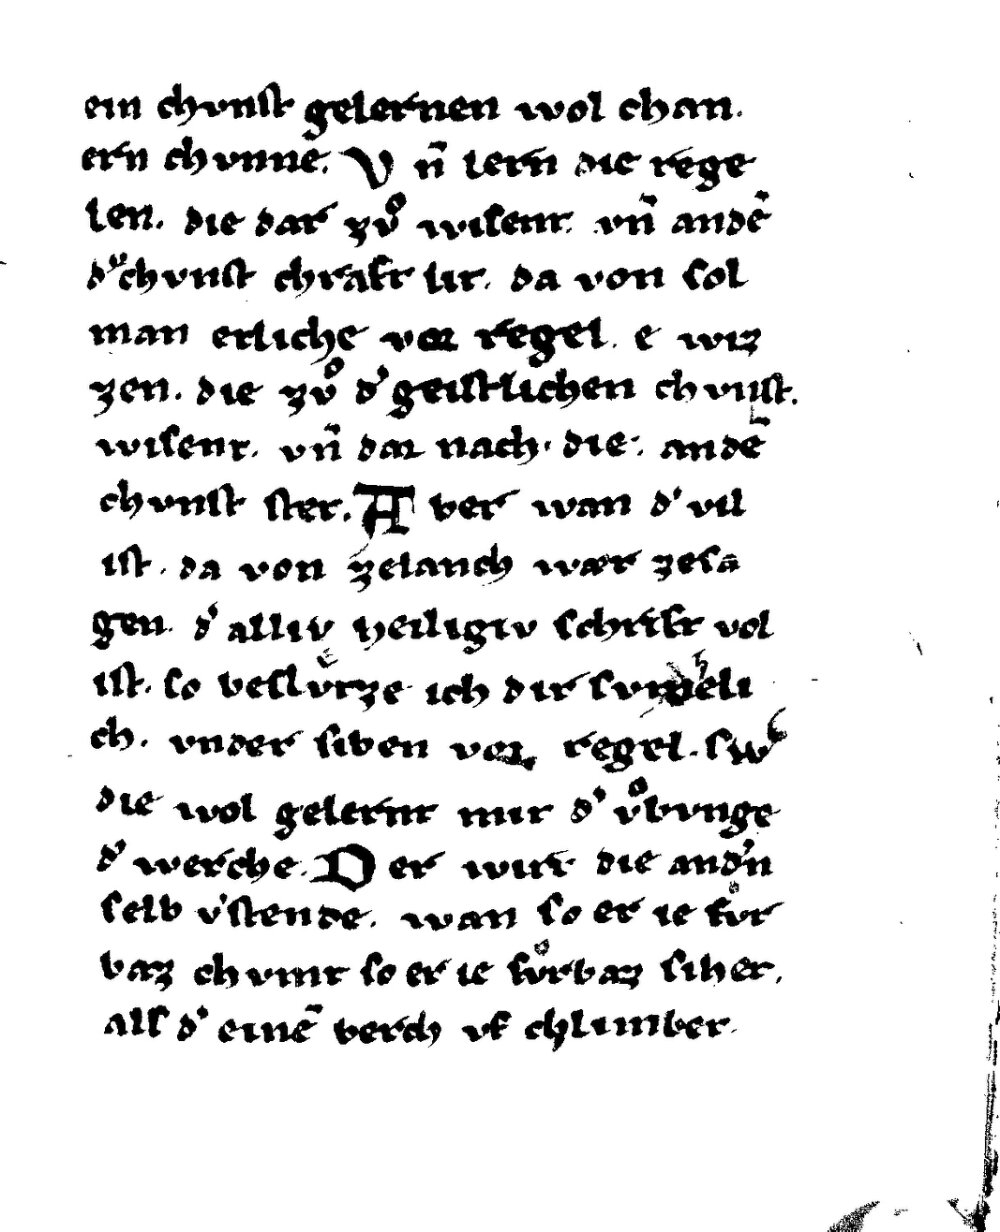 ein chvnst gelernen wol chan.
ern chvnne. Vn̄ lern die rege
len. die dar zvͦ wisent. vn̄ andē
d᾿chvnst chraft lit. da von sol
man erliche vor regel. e wiz
zen. die zvͦ d᾿ geistlichen chvnst.
wisent. vn̄ dar nach. die. andē
chvnst stet. Aber wan d᾿ vil
ist. da von zelanch wær zesa
gen. d᾿ alliv heiligiv schrift vol
ist. so besluͤrze ich dir
ch. vnder siben vor regel. sw᾿
die wol gelernt mit d᾿ vͦbvnge
d᾿ werche. Der wirt die and᾿n
selb v᾿stende. wan so er ie fvͦr
baz chvmt so er ie fvͦrbaz siher.
als d᾿ einē berch vf chlimbet.